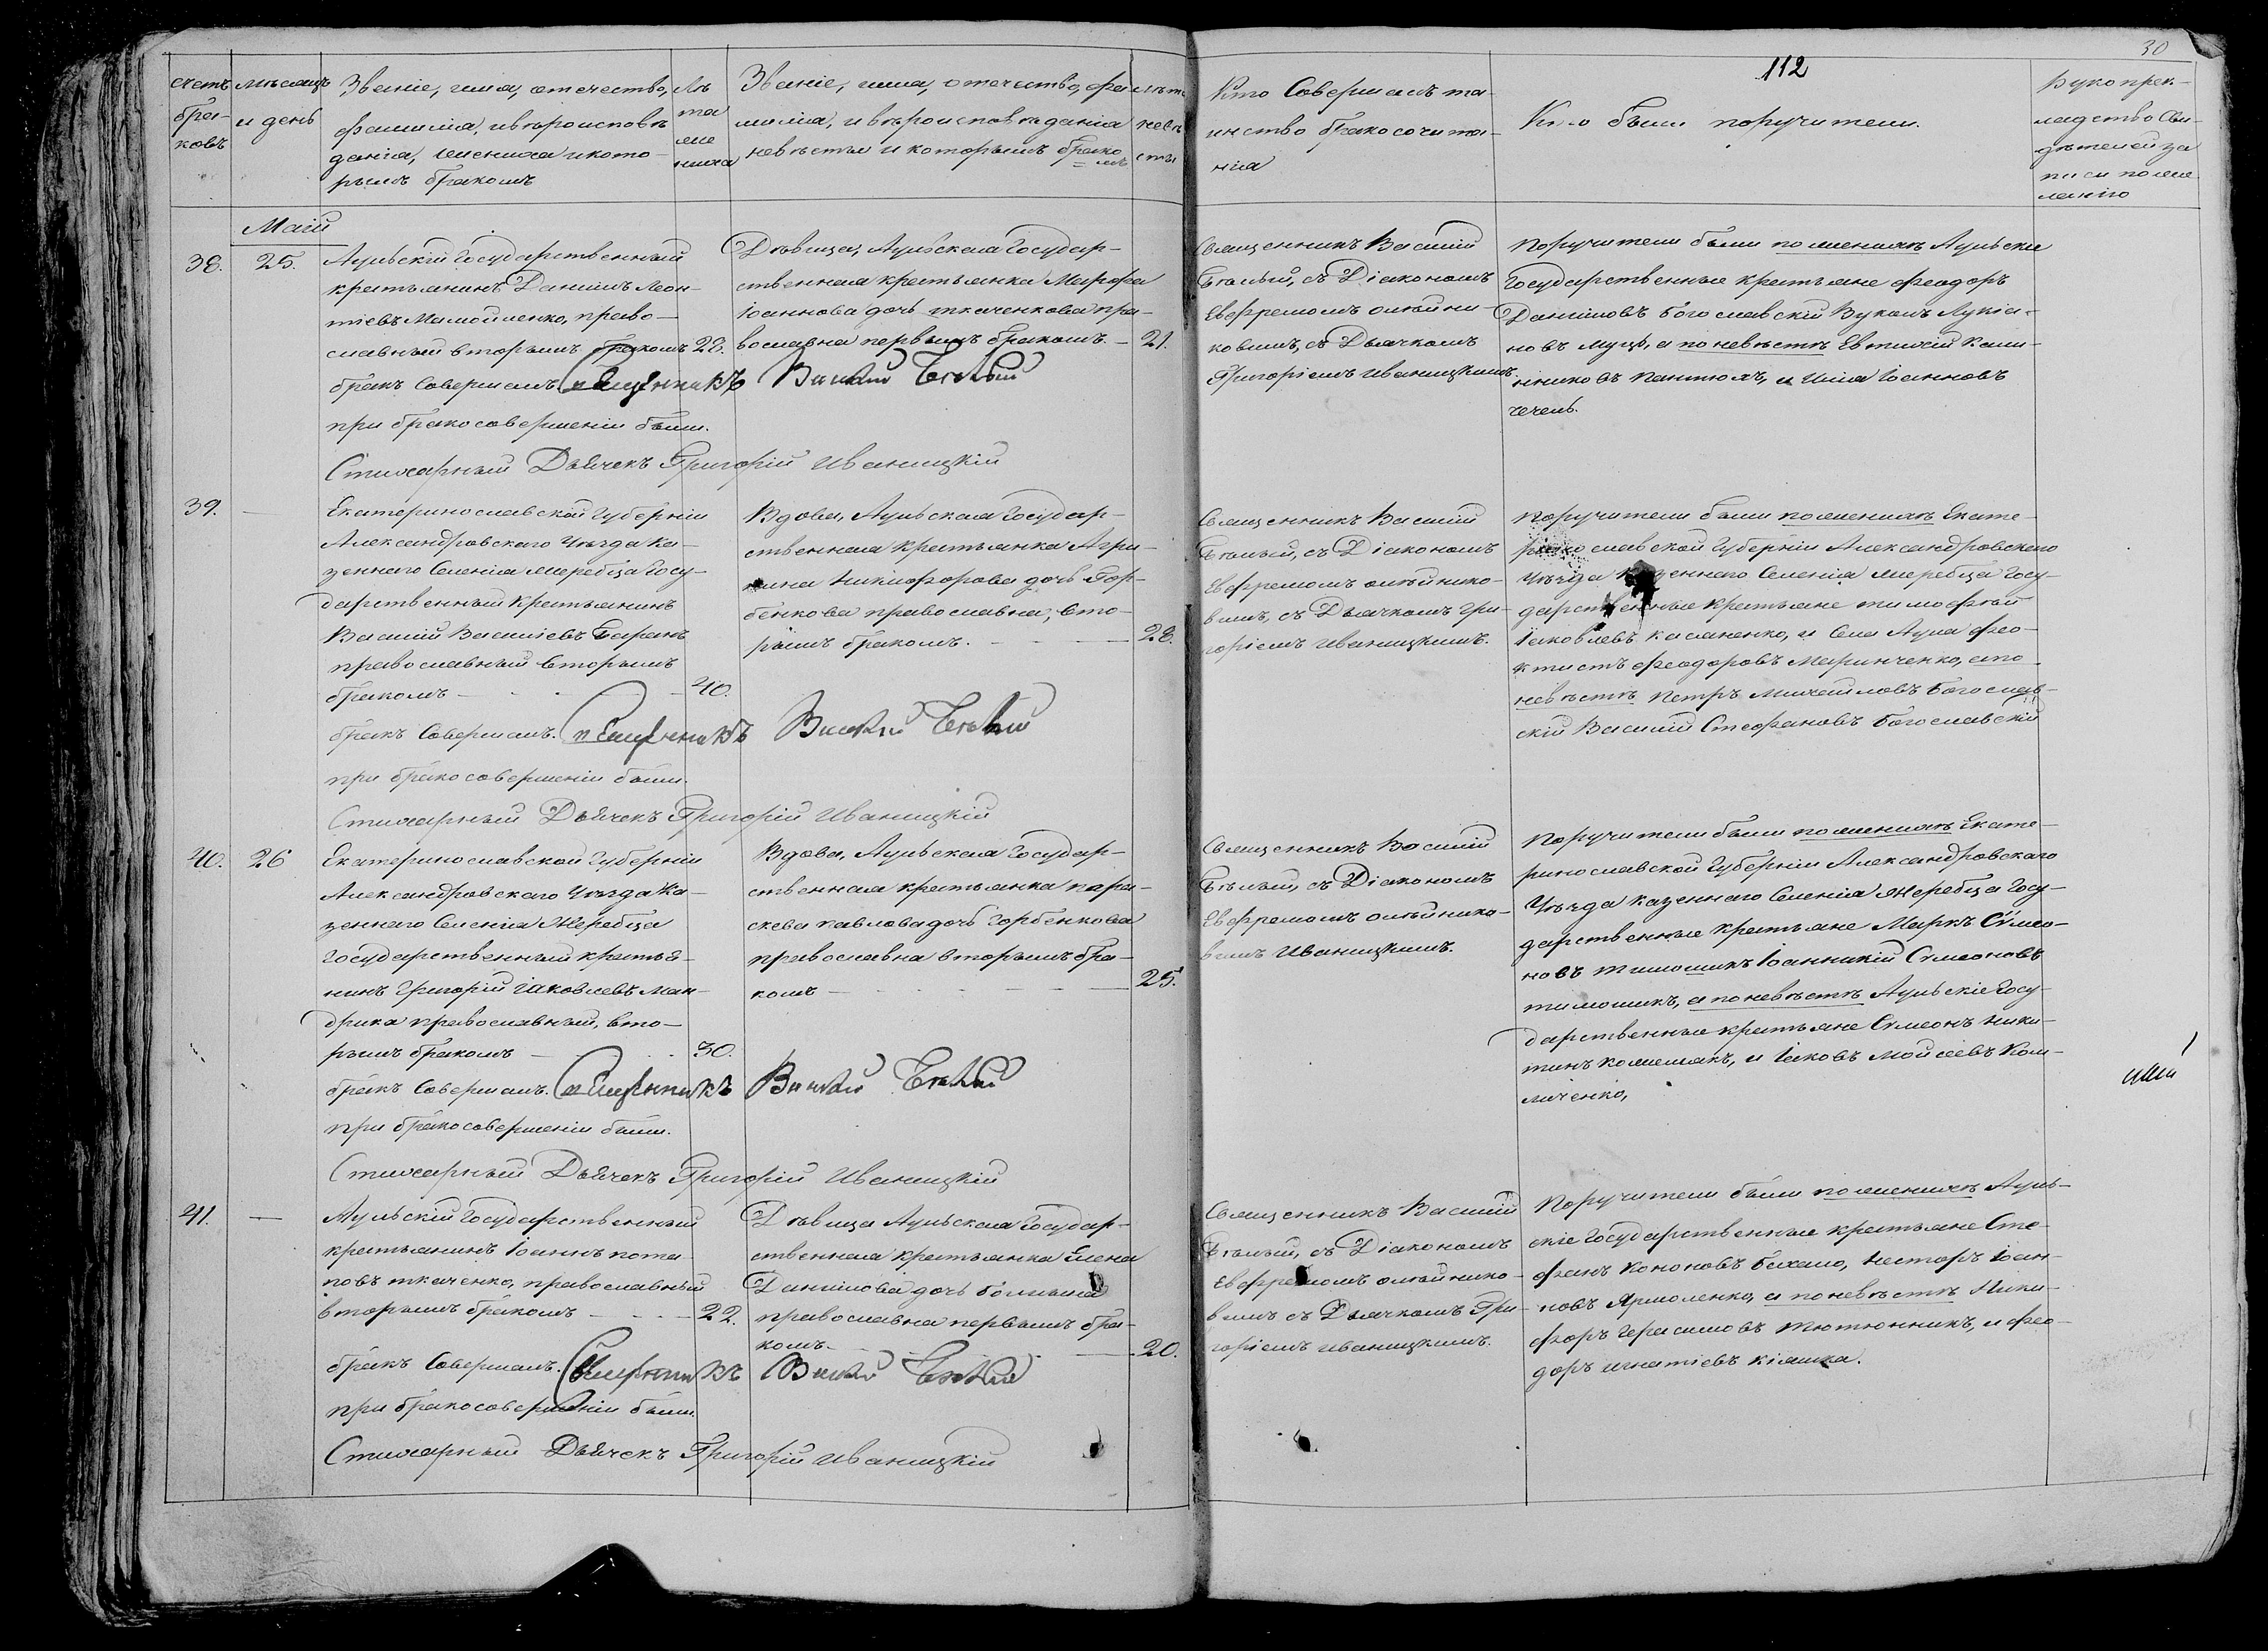 30
112
Счетъ бра-
ковъ
мѣсяцъ
и день
Званіе, имя, отечество,
фамилія, и вѣроисповѣ
данія, жениха и кото-
рымъ бракомъ
Лѣ
та
же
ниха
Званіе, имя, отечество, фа
милія, и вѣроисповѣданія
невѣсты и которымъ брако
мъ
лѣта
невѣ
сты
Кто Совершалъ та-
инство бракосочета-
нія
Кто были поручители.
Рукопрек-
ладство Сви-
дѣтелей за
писи по же
ланію
Маій
38.
25.
Аульскій Государственный
крестьянинъ Даніилъ Леон-
тіевъ Мамойленко, право-
славный вторымъ бракомъ 28.
бракъ Совершалъ Священникъ Василій Бѣлый
при бракосовершеніи были.
Стихарный Дьячекъ Григорій Иваницкій
Дѣвица, Аульская Государ-
ственная крестьянка Марфа
Іоаннова дочь ткаченкова пра-
вославна первымъ бракомъ. — 21.
Священникъ Василій
Бѣлый, съ Діакономъ
Евфремомъ олѣйни-
ковымъ, съ Дьячкомъ
Григоріемъ Иваницкимъ.
Поручители были по женихѣ Аульскіе
Государственные крестьяне Феодоръ
Даніиловъ Богославскій Вуколъ Лукіа-
новъ Муць, а по невѣстѣ Евтихій Кали-
нниковъ Пантюхъ, и Илія Іоанновъ
чечель.
39.
—
Екатеринославской Губерніи
Александровскаго Уѣзда Ка-
зеннаго Селенія жеребца Госу-
дарственный Крестьянинъ
Василій Василіевъ Баранъ
православный вторымъ
бракомъ — 40.
бракъ Совершалъ. Священникъ Василій Бѣлый
при бракосовершеніи были.
Стихарный Дьячекъ Григорій Иваницкій
Вдова, Аульская Государ-
ственная крестьянка Агри-
пина Никифорова дочь Гор-
бенкова православна, вто-
рымъ бракомъ. — 28.
Священникъ Василій
Бѣлый, съ Діакономъ
Евфремомъ олѣйнико-
вымъ, съ Дьячкомъ Гри-
горіемъ Иваницкимъ.
Поручители были по женихѣ Екате-
ринославской Губерніи Александровскаго
Уѣзда казеннаго Селенія жеребца Госу-
дарственные крестьяне тимофѣй
Іаковлевъ касяненко, и Села Аула Фео-
ктистъ Феодоровъ Маринченко, а по
невѣстѣ Петръ Михаиловъ Богослав-
скій Василій Стефановъ Богославскій
40.
26
Екатеринославской Губерніи
Александровскаго Уѣзда Ка-
зеннаго Селенія Жеребца
Государственный крестья-
нинъ Григорій Іаковлевъ Ман-
дрика православный, вто-
рымъ бракомъ — 30.
бракъ Совершалъ. Священникъ Василій Бѣлый
при бракосовершеніи были.
Стихарный Дьячекъ Григорій Иваницкій
Вдова, Аульская Государ-
ственная крестьянка пара-
скева павлова дочь Горбенкова
православна вторымъ бра-
комъ — 25.
Священникъ Василій
Бѣлый, съ Діакономъ
Евфремомъ олѣйнико-
вымъ Иваницкимъ.
Поручители были по женихѣ Екате-
ринославской Губерніи Александровскаго
Уѣзда казеннаго Селенія Жеребца Госу-
дарственные крестьяне Маркъ Сѵмео-
новъ тимошикъ Іоанникій Сѵмеоновъ
тимошикъ, а по невѣстѣ Аульскіе Госу-
дарственные крестьяне Сѵмеонъ Ники-
тинъ кожемякъ, и Іаковъ Мойсеевъ Ком-
личенко,
41.
—
Аульскій Государственный
крестьянинъ Іоаннъ пота-
повъ ткаченко, православный
вторымъ бракомъ — 22.
бракъ Совершалъ. Священникъ Василій Бѣлый
при бракосовершеніи были.
Стихарный Дьячекъ Григорій Иваницкій
Дѣвица Аульская Государ-
ственная крестьянка Елена
Даніилова дочь
православна первымъ бра-
комъ — 20.
Священникъ Василій
Бѣлый, съ Діакономъ
Евфремомъ олѣйнико-
вымъ съ Дьячкомъ Гри-
горіемъ иваницкимъ.
Поручители были по женихѣ Ауль-
скіе Государственные крестьяне Сте-
фанъ Кононовъ Бахало, Несторъ Іоан-
новъ Ярмоленко, а по невѣстѣ Ники-
форъ Герасимовъ Тютюнникъ, и Фео-
доръ игнатіевъ кіяшка.